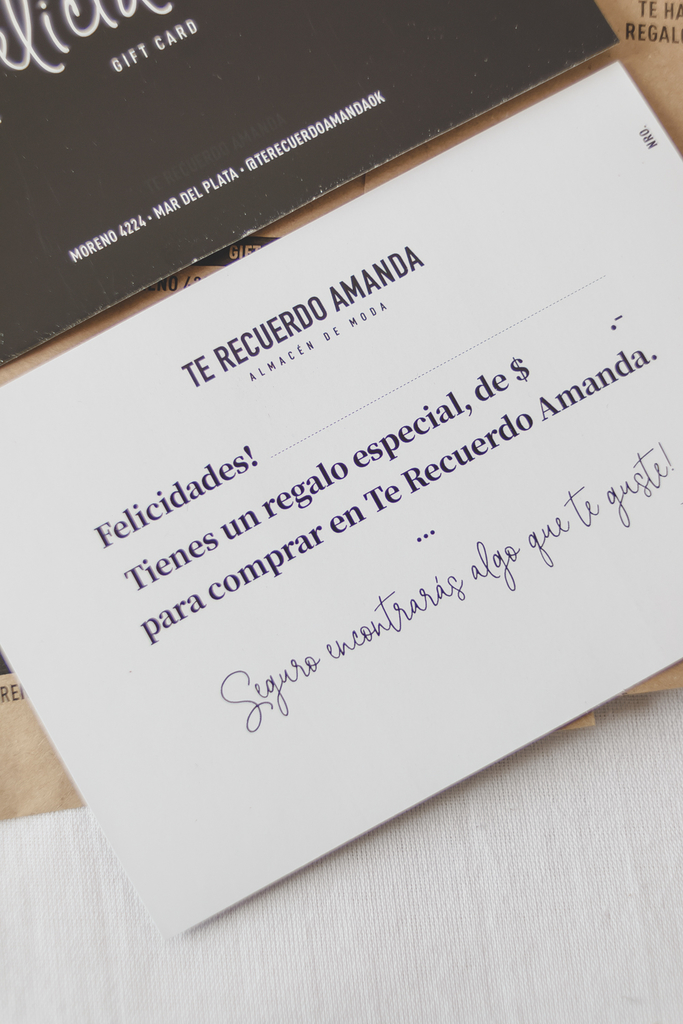 GIFT CARD
TE HA
REGAL
TE RECUERDO AMANDA
MORENO 4224 · MAR DEL PLATA · @TERECUERDOAMANDAOK
NRO.
GIFT
TE RECUERDO AMANDA
ALMACÉN DE MODA
Felicidades!
Tienes un regalo especial, de $ .-
para comprar en Te Recuerdo Amanda.
...
Seguro encontrarás algo que te guste!